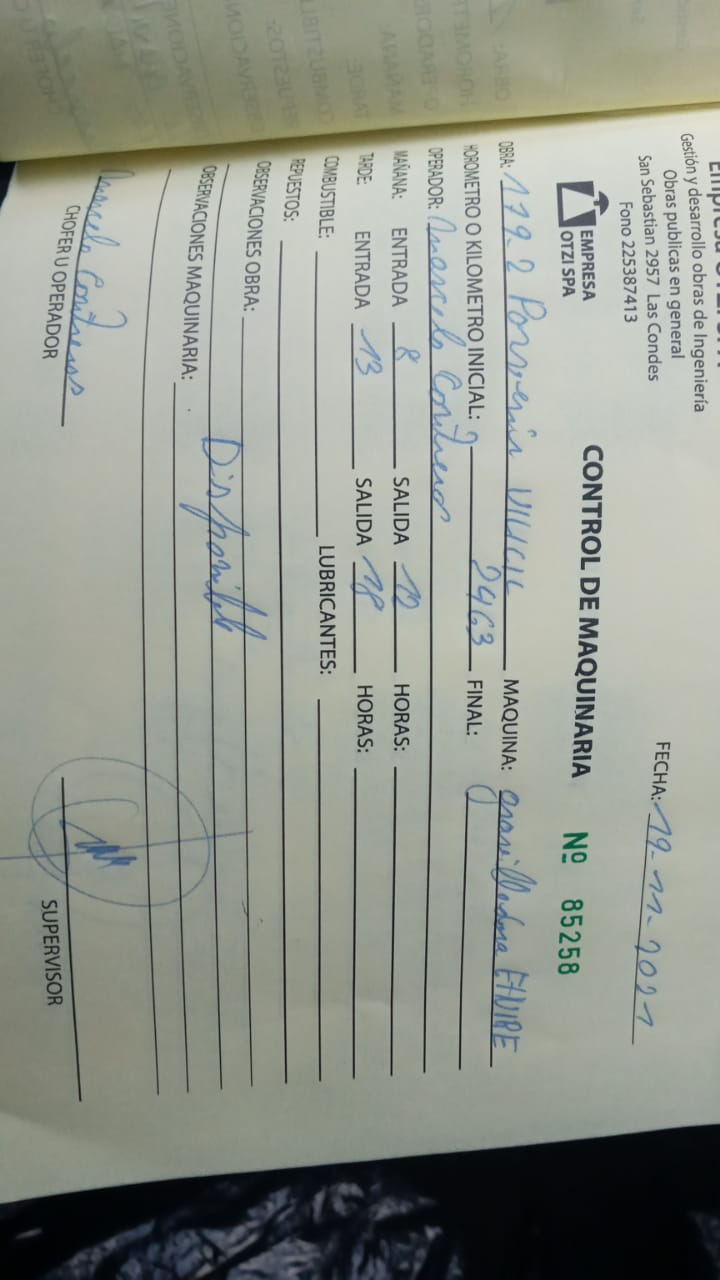 Empresa OTZI SPA
Gestión y desarrollo obras de Ingeniería
Obras publicas en general
San Sebastian 2957 Las Condes
Fono 225387413
FECHA: 19-11-2021
EMPRESA
OTZI SPA
CONTROL DE MAQUINARIA Nº 85258
OBRA: 179-2 Porvenir MAQUINA: gravilladora
HOROMETRO O KILOMETRO INICIAL: 2463 FINAL:
OPERADOR: Marcelo Contreras
MAÑANA: ENTRADA 8 SALIDA 12 HORAS:
TARDE: ENTRADA 13 SALIDA 18 HORAS:
COMBUSTIBLE: LUBRICANTES:
REPUESTOS:
OBSERVACIONES OBRA:
Disponible
OBSERVACIONES MAQUINARIA:
Marcelo Contreras
CHOFER U OPERADOR
SUPERVISOR